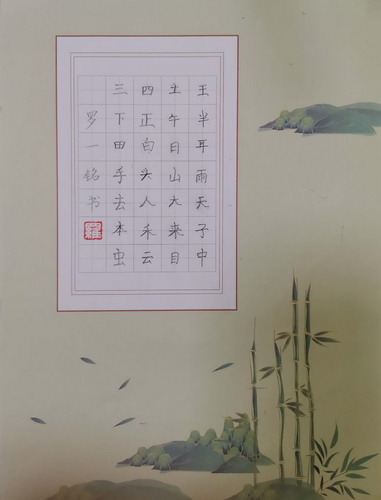 王半耳雨天子中
土午日山大来目
四正白头人禾云
三下田手去本虫
罗一铭书